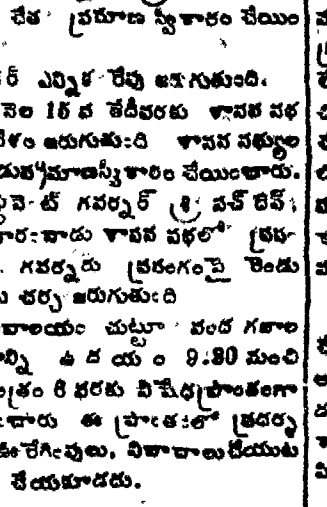 చేత ప్రమాణ స్వీకారం చేయిం
ర్ ఎన్నిక రేపు జరుగుతుంది.
నెల 15 వ తేదీవరకు శాసన సభ
శం జరుగుతుంది శాసన సభ్యుల
ప్రమాణస్వీకారం చేయించారు.
గవర్నర్ శ్రీ సచ్ దేవ్,
వాడు శాసన సభలో ప్రసం
గవర్నరు ప్రసంగంపై రెండు
చర్చ జరుగుతుంది
చుట్టూ వంద గజాల
ఉ ద యం 9.30 నుంచి
త్రం 6 వరకు నిషేధప్రాంతంగా
చారు ఈ ప్రాంతంలో ప్రదర్శ
ఊరేగింపులు, నినాదాలుచేయుట
చేయకూడదు.